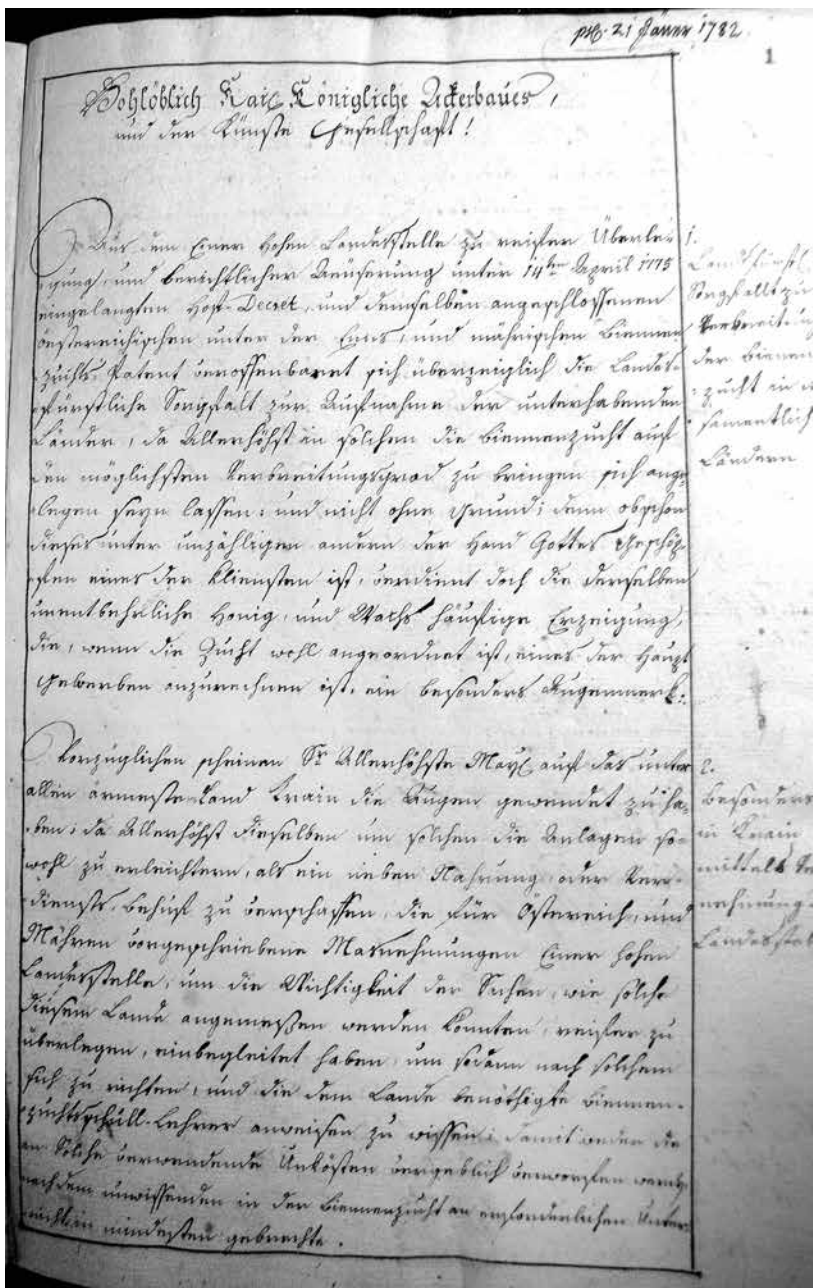 21 Jäner 1782
1
Wohlöblich Kais Königliche Ackerbaues,
und der Künste Gesellschaft!
Aus dem Einer Hohen Landesstelle zu reifer Überle-
gung, und berichtlicher Äuserung unter 14ten April 1775
eingelangten Hof-Decret, und demselben angeschlossenen
öesterreichischen unter der Enns, und mährischen Biennen
zuchts Patent veroffenbaret sich überzeiglich die Landes-
fürstliche Sorgfalt zur Aufnahme der unterhabenden
Länder, da Allerhöhst in solchen die Biennenzucht auf
den möglichsten Verbreitungsgrad zu bringen sich ange-
legen seyn lassen: und nicht ohne Grund; denn obschon
dieses unter unzähligen andern der Hand Gottes Geschöp-
fen eines der kliensten ist, verdient doch die derselben
unentbehrliche Honig, und Wachs häufige Erzeigung,
die, wenn die Zucht wohl angeordnet ist, eines der Haupt
Gewerben anzurechnen ist, ein besonders Augenmerk:
Vorzüglichen scheinen Sr Allerhöhste Mayt auf das unter
allen ärmeste Land Krain die Augen gewendet zu ha-
ben; da Allerhöhst dieselben um solchen die Anlagen so-
wohl zu erleichtern, als ein neben Nahrung, oder Ver-
diensts-Behuf zu verschaffen, die für Östereich, und
Mähren vorgeschriebene Masnehmungen Einer Hohen
Landesstelle, um die Wichtigkeit der Sachen, wie solche
diesem Lande angemeßen werden konnten, reifer zu
überlegen, einbegleitet haben, um sodann nach solchem
sich zu richten, und die dem Lande benöthigte Biennen-
zuchtsschull-Lehrer anweisen zu wissen; damit weder die
an solche verwendende Unkösten vergeblich verworfen werden,
noch dem unwissenden in der Biennenzucht an erforderlichen Unter-
richt in mindesten gebrechte.
1.
Landsfürstl
Sorgfallt zu
Verbreitung
der Bienen
zucht in
samentlich
Ländern
2.
Besonders
in Krain
mittels
nehmung
Landesste